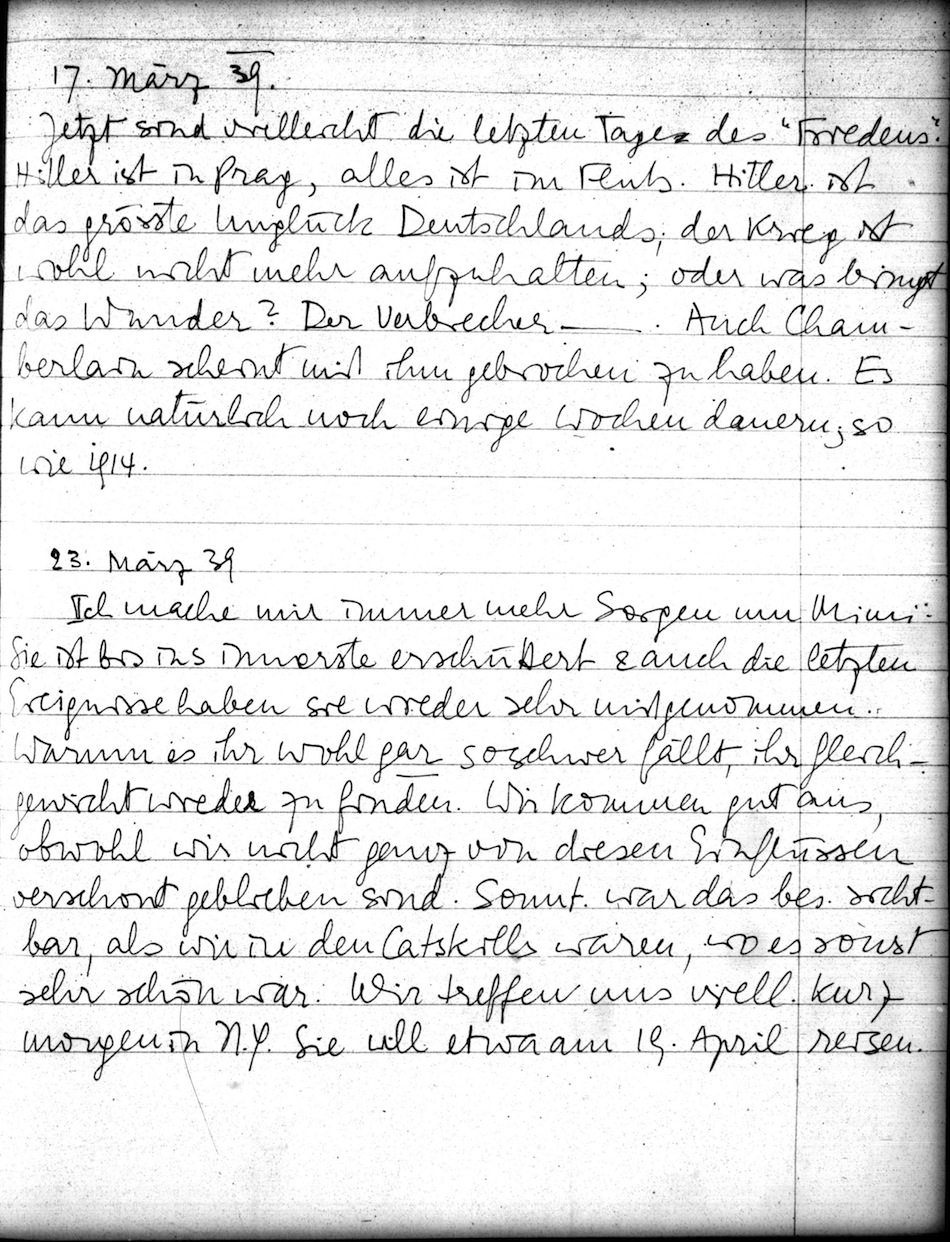 17. März 39.
Jetzt sind vielleicht die letzten Tage des "Friedens".
Hitler ist in Prag, alles ist im Fluss. Hitler ist
das grösste Unglück Deutschlands; der Krieg ist
wohl nicht mehr aufzuhalten; oder was bringt
das Wunder? Der Verbrecher ——. Auch Cham-
berlain scheint mit ihm gebrochen zu haben. Es
kann natürlich noch einige Wochen dauern; so
wie 1914.
23. März 39
Ich mache mir immer mehr Sorgen um Mimi:
Sie ist bis ins innerste erschüttert & auch die letzten
Ereignisse haben sie wieder sehr mitgenommen.
Warum es ihr wohl gar so schwer fällt, ihr Gleich-
gewicht wieder zu finden. Wir kommen gut aus,
obwohl wir nicht ganz von diesen Einflüssen
verschont geblieben sind. Sonnt. war das bes. sicht-
bar, als wir in den Catskills waren, wo es sonst
sehr schön war. Wir treffen uns viell. kurz
morgen in N.Y. Sie will etwa am 19. April reisen.